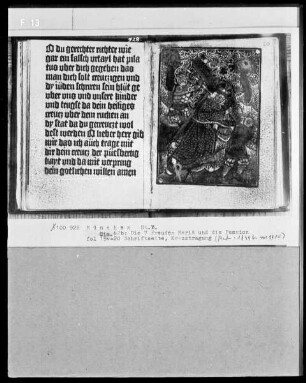 F 13
O du gerechter richter wie
gar ein falsch urtayl hat pila
tus uber dich gegeben das
man dich solt creutzigen und
dy iuden schriren sein blut ge
uber uns und unsere kinder
und trugst da dein heiliges
creutz uber dein rucken an
dy stat da du gecreutzt wol
dest werden O lieber herr gib
mir das ich auch trage mit
dir dein creutz der
hayt und da mit
dein gotlichen willen amen
München St.B.
Cim. : Die 7 Freuden Mariä und die Passion
fol Schriftseite, Kreuztragung